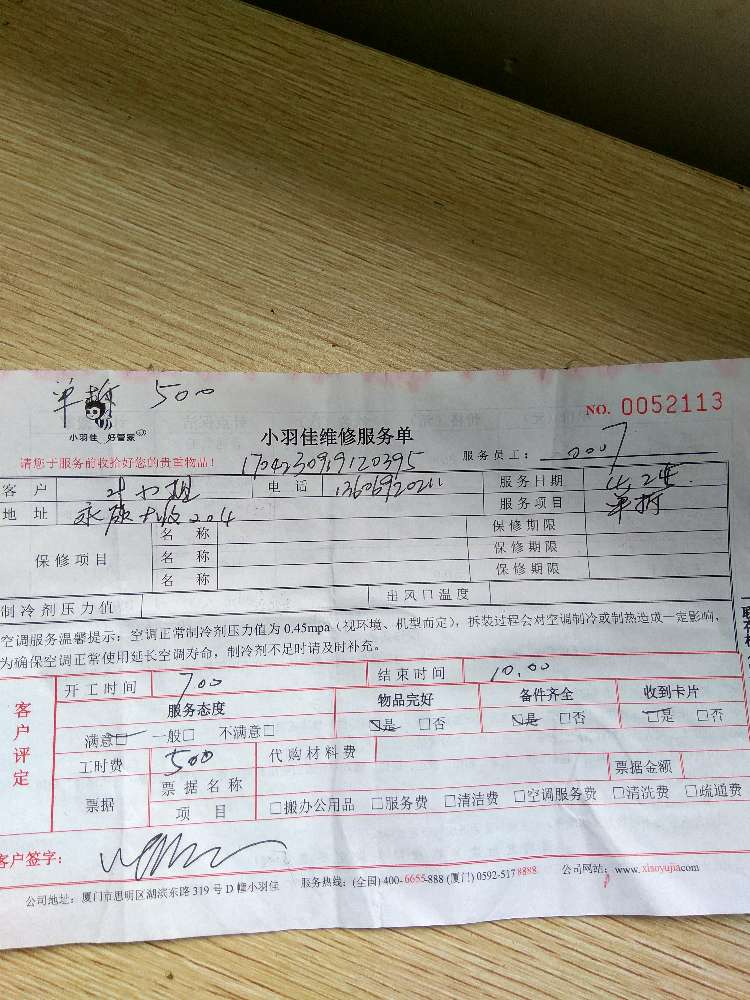 单拆 500
小羽佳 好管家
NO. 0052113
小羽佳维修服务单
请您于服务前收拾好您的贵重物品!
服务员工: 007
客户 电话 服务日期 4.24.
地址 204 服务项目 单拆
保修项目 名称 保修期限
名称 保修期限
名称 保修期限
制冷剂压力值 出风口温度
空调服务温馨提示:空调正常制冷剂压力值为0.45mpa(视环境、机型而定),拆装过程会对空调制冷或制热造成一定影响,
为确保空调正常使用延长空调寿命,制冷剂不足时请及时补充。
客户评定
开工时间 700 结束时间 10.00
服务态度 物品完好 备件齐全 收到卡片
满意□ 一般□ 不满意□ □是 □否 □是 □否 □是 □否
工时费 500 代购材料费
票据 票据名称 票据金额
项目 □搬办公用品 □服务费 □清洁费 □空调服务费 □清洗费 □疏通费
客户签字:
公司地址:厦门市思明区湖滨东路319号D幢小羽佳 服务热线:(全国)400-6655-888 (厦门) 0592-5178888 公司网站:www.xiaoyujia.com